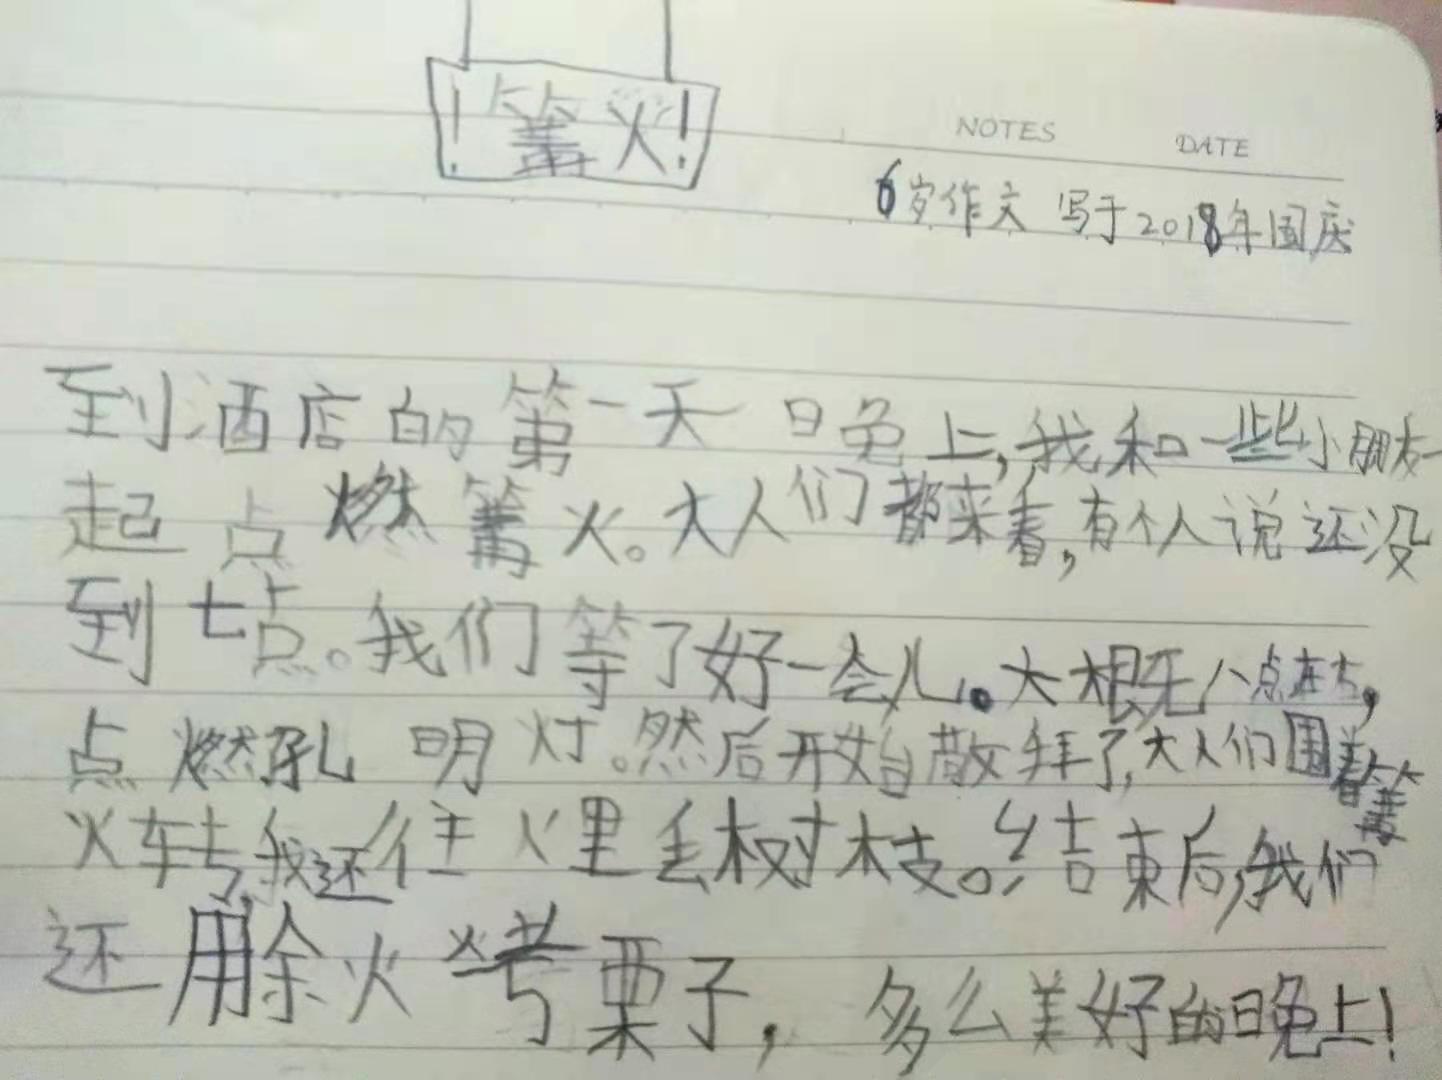 !篝火!
NOTES DATE
6岁作文 写于2018年国庆
到酒店的第一天晚上,我和一些小朋友一
起点燃篝火。大人们都来看,有个人说还没
到七点。我们等了好一会儿。大根先八点左右,
点燃孔明灯。然后开始散拜了,大人们围着篝
火转,我还往火里丢树枝。结束后,我们
还用余火烤栗子,多么美好的晚上!